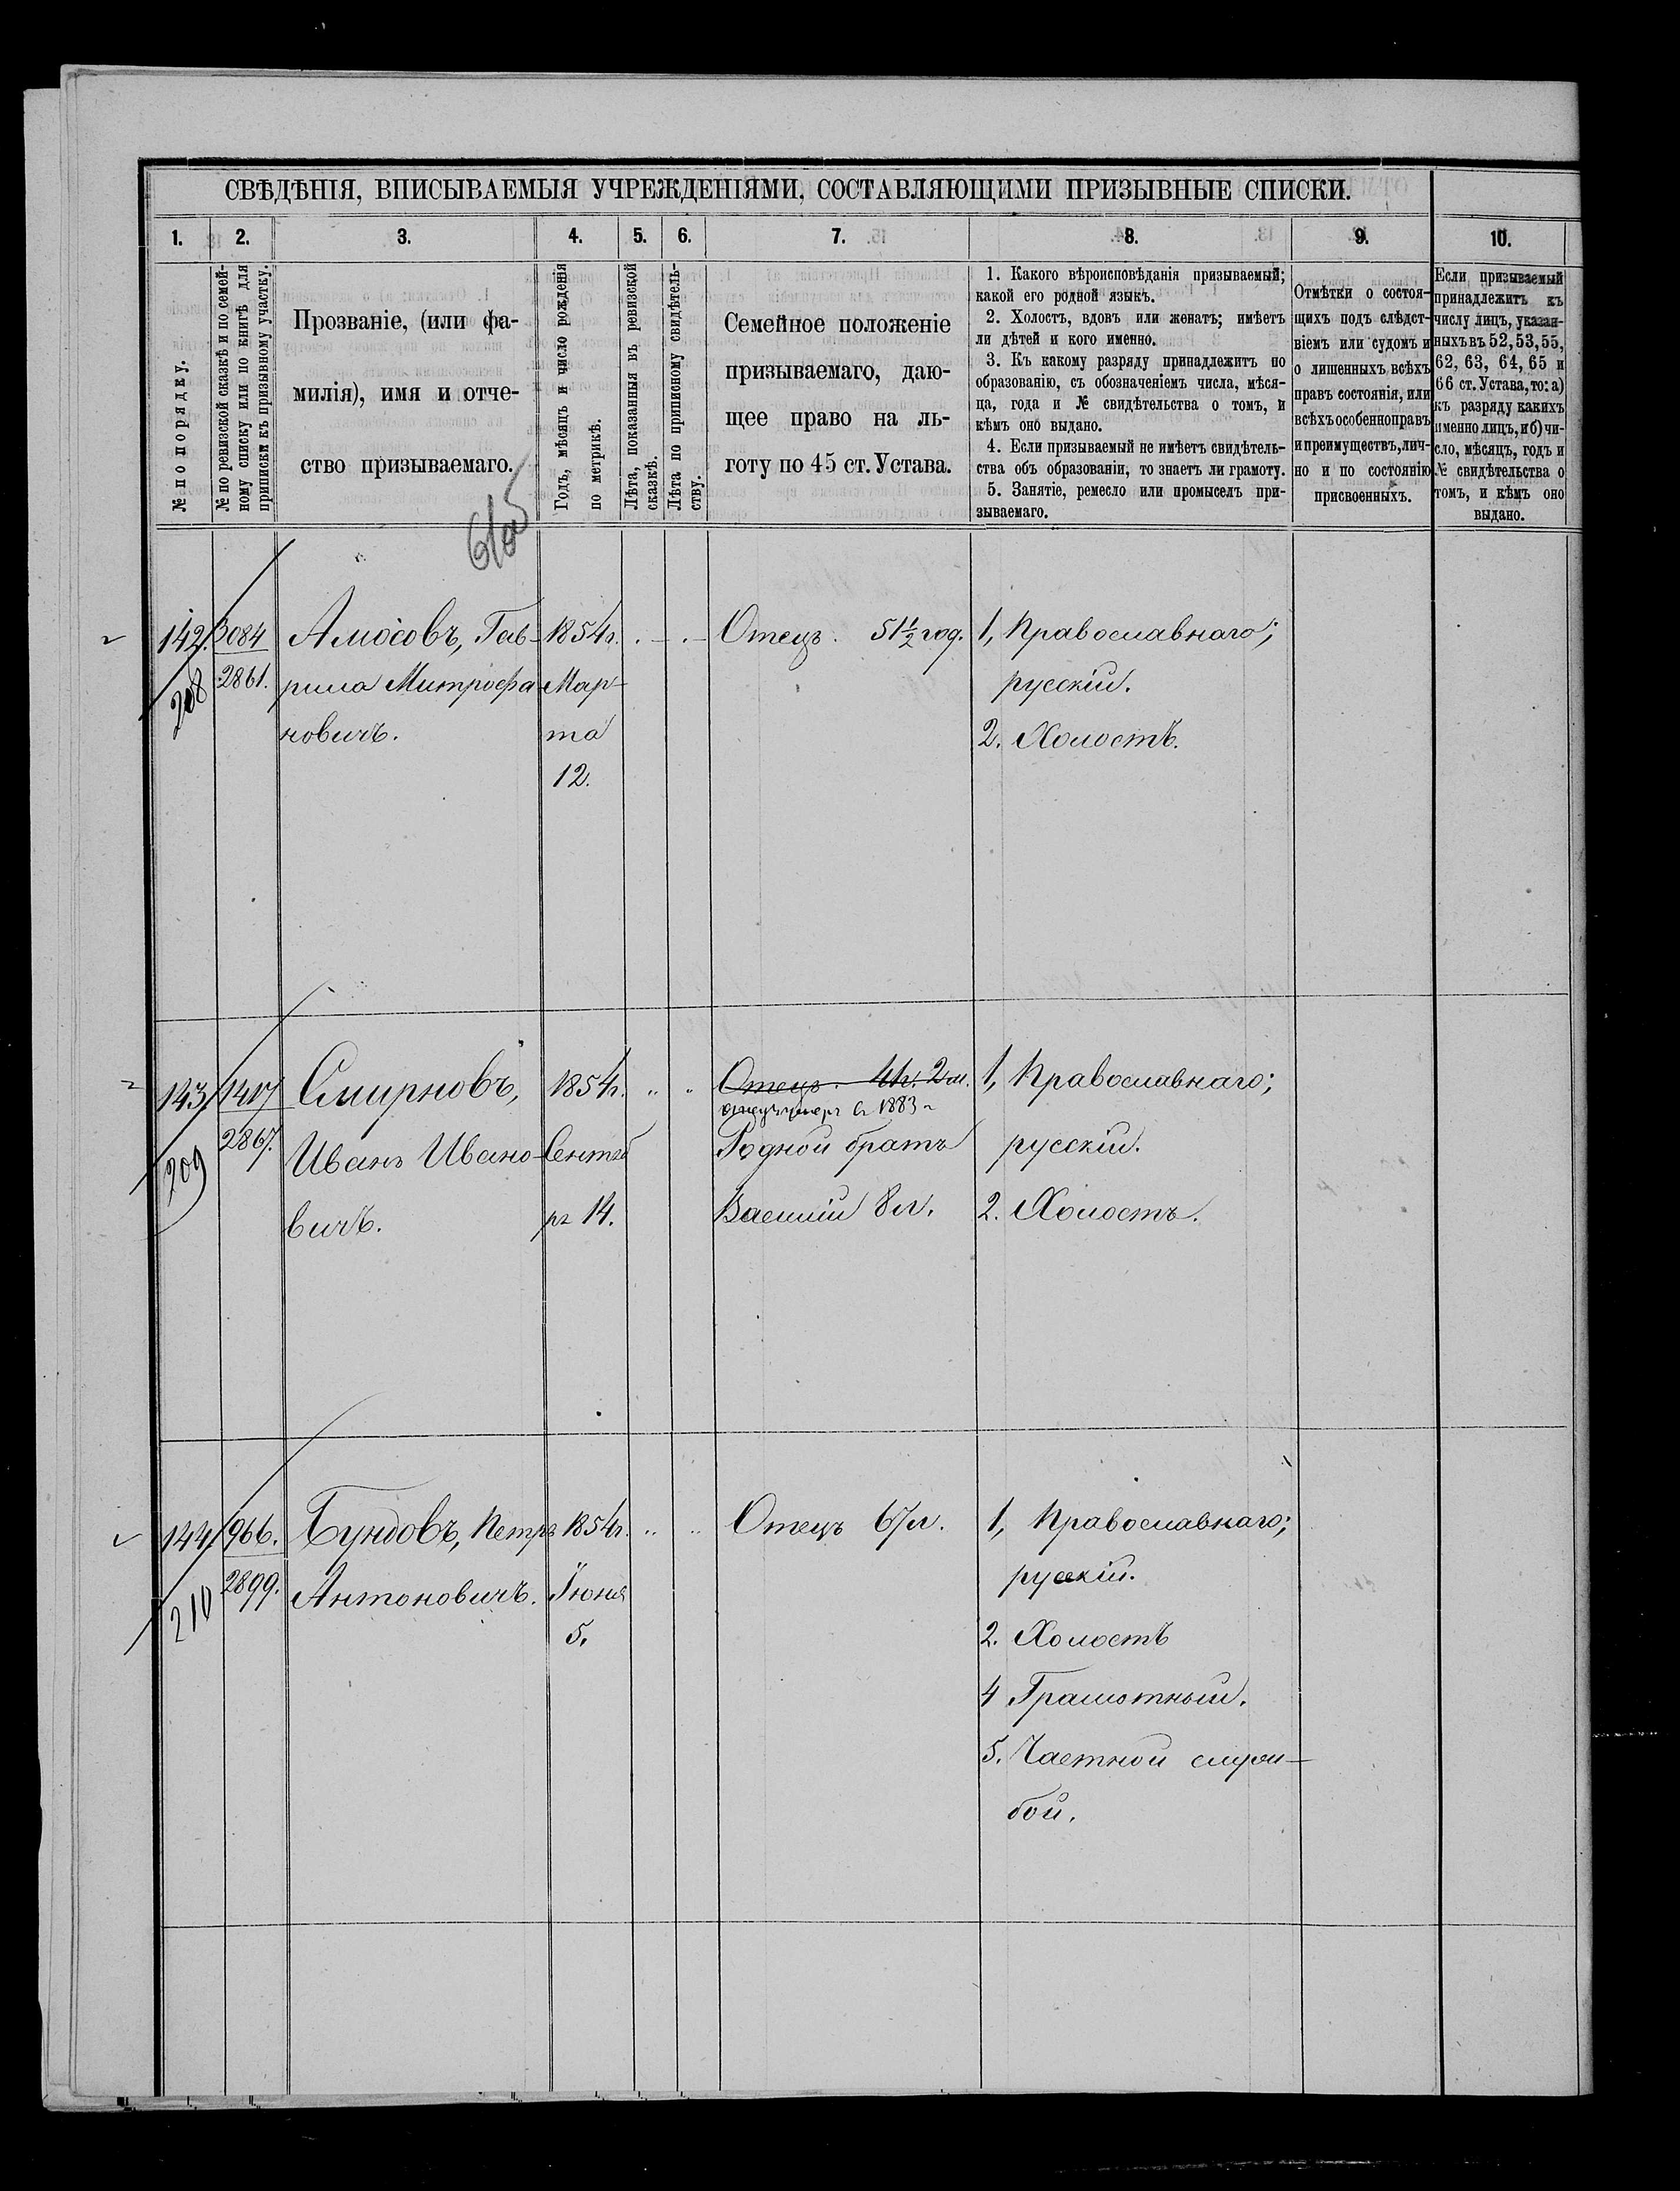 СВѢДѢНІЯ, ВПИСЫВАЕМЫЯ УЧРЕЖДЕНІЯМИ, СОСТАВЛЯЮЩИМИ ПРИЗЫВНЫЕ СПИСКИ.
1. 2. 3. 4. 5. 6. 7. 8. 9. 10.
№ по порядку.
№ по ревизской сказкѣ и по семей-
ному списку или по книгѣ для
приписки къ призывному участку.
Прозваніе, (или фа-
милія), имя и отче-
ство призываемаго.
Годъ, мѣсяцъ и число рожденія
по метрикѣ.
Лѣта, показанныя въ ревизской
сказкѣ.
Лѣта по приписному свидѣтель-
ству.
Семейное положеніе
призываемаго, даю-
щее право на ль-
готу по 45 ст. Устава.
1. Какого вѣроисповѣданія призываемый;
какой его родной языкъ.
2. Холостъ, вдовъ или женатъ; имѣетъ
ли дѣтей и кого именно.
3. Къ какому разряду принадлежитъ по
образованію, съ обозначеніемъ числа, мѣся-
ца, года и № свидѣтельства о томъ, и
кѣмъ оно выдано.
4. Если призываемый не имѣетъ свидѣтель-
ства объ образованіи, то знаетъ ли грамоту.
5. Занятіе, ремесло или промыселъ при-
зываемаго.
Отмѣтки о состоя-
щихъ подъ слѣдст-
віемъ или судомъ и
о лишенныхъ всѣхъ
правъ состоянія, или
всѣхъ особенно правъ
и преимуществъ, лич-
но и по состоянію
присвоенныхъ.
Если призываемый
принадлежитъ къ
числу лицъ, указан-
ныхъ въ 52, 53, 55,
62, 63, 64, 65 и
66 ст. Устава, то: а)
къ разряду какихъ
именно лицъ, и б) чи-
сло, мѣсяцъ, годъ и
№ свидѣтельства о
томъ, и кѣмъ оно
выдано.
142. 3084 Амосовъ, Гав- 1854г. Отецъ. 51½ год. 1, Православнаго;
208 2861. рила Митрофа Мар- русскій.
новичъ. та 2. Холостъ.
12.
143 1417 Смирновъ, 1854г. Отецъ. 41г. 2м. 1, Православнаго;
отецъ умеръ въ 1883 г
209 2867. Иванъ Ивано- Сентяб Родной братъ русскій.
вичъ. ря 14. Василій 8л. 2. Холостъ.
144 966. Бундовъ, Петръ 1854г. Отецъ 67л. 1, Православнаго;
210 2899. Антоновичъ. Іюня русскій.
5. 2. Холостъ
4 Грамотный.
5. Частной служ-
бой.